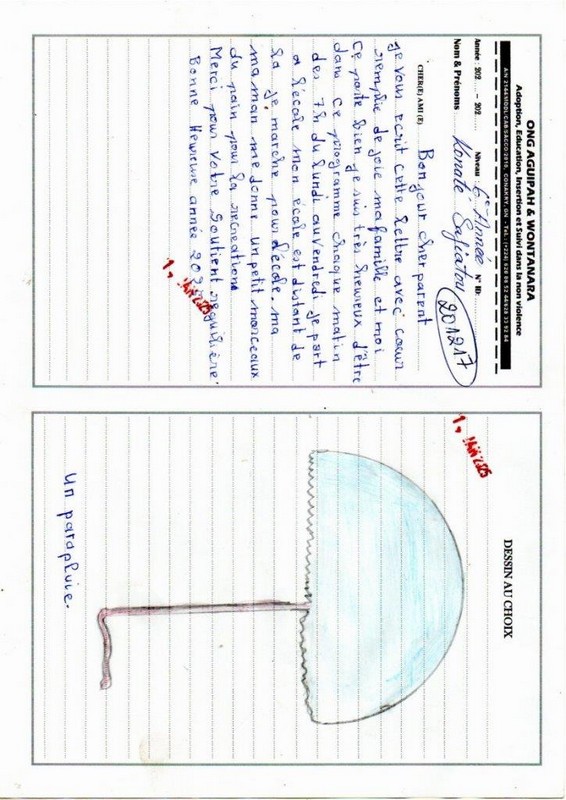 ONG AGUIPAH & WONTANARA
Adoption, Education, Insertion et Suivi dans la non violence
Année : 202 ..... - 202 ..... Niveau : 6e Année N° ID: 201217
Nom & Prénoms Konaté Safiatou
CHER(E) AMI (E) Bonjour cher parent
je vous ecrit cette lettre avec cœur
remplie de joie ma famille et moi
Ce porte bien je suis très heureux d'être
dans ce programme chaque matin
des 7h du lundi au vendredi je part
a l'école mon école est distant de
la je marche pour l'école. ma
maman me donne un petit morceaux
du pain pour la recreation
Merci pour votre soutient
Bonne Heureuse année
DESSIN AU CHOIX
un parapluie.